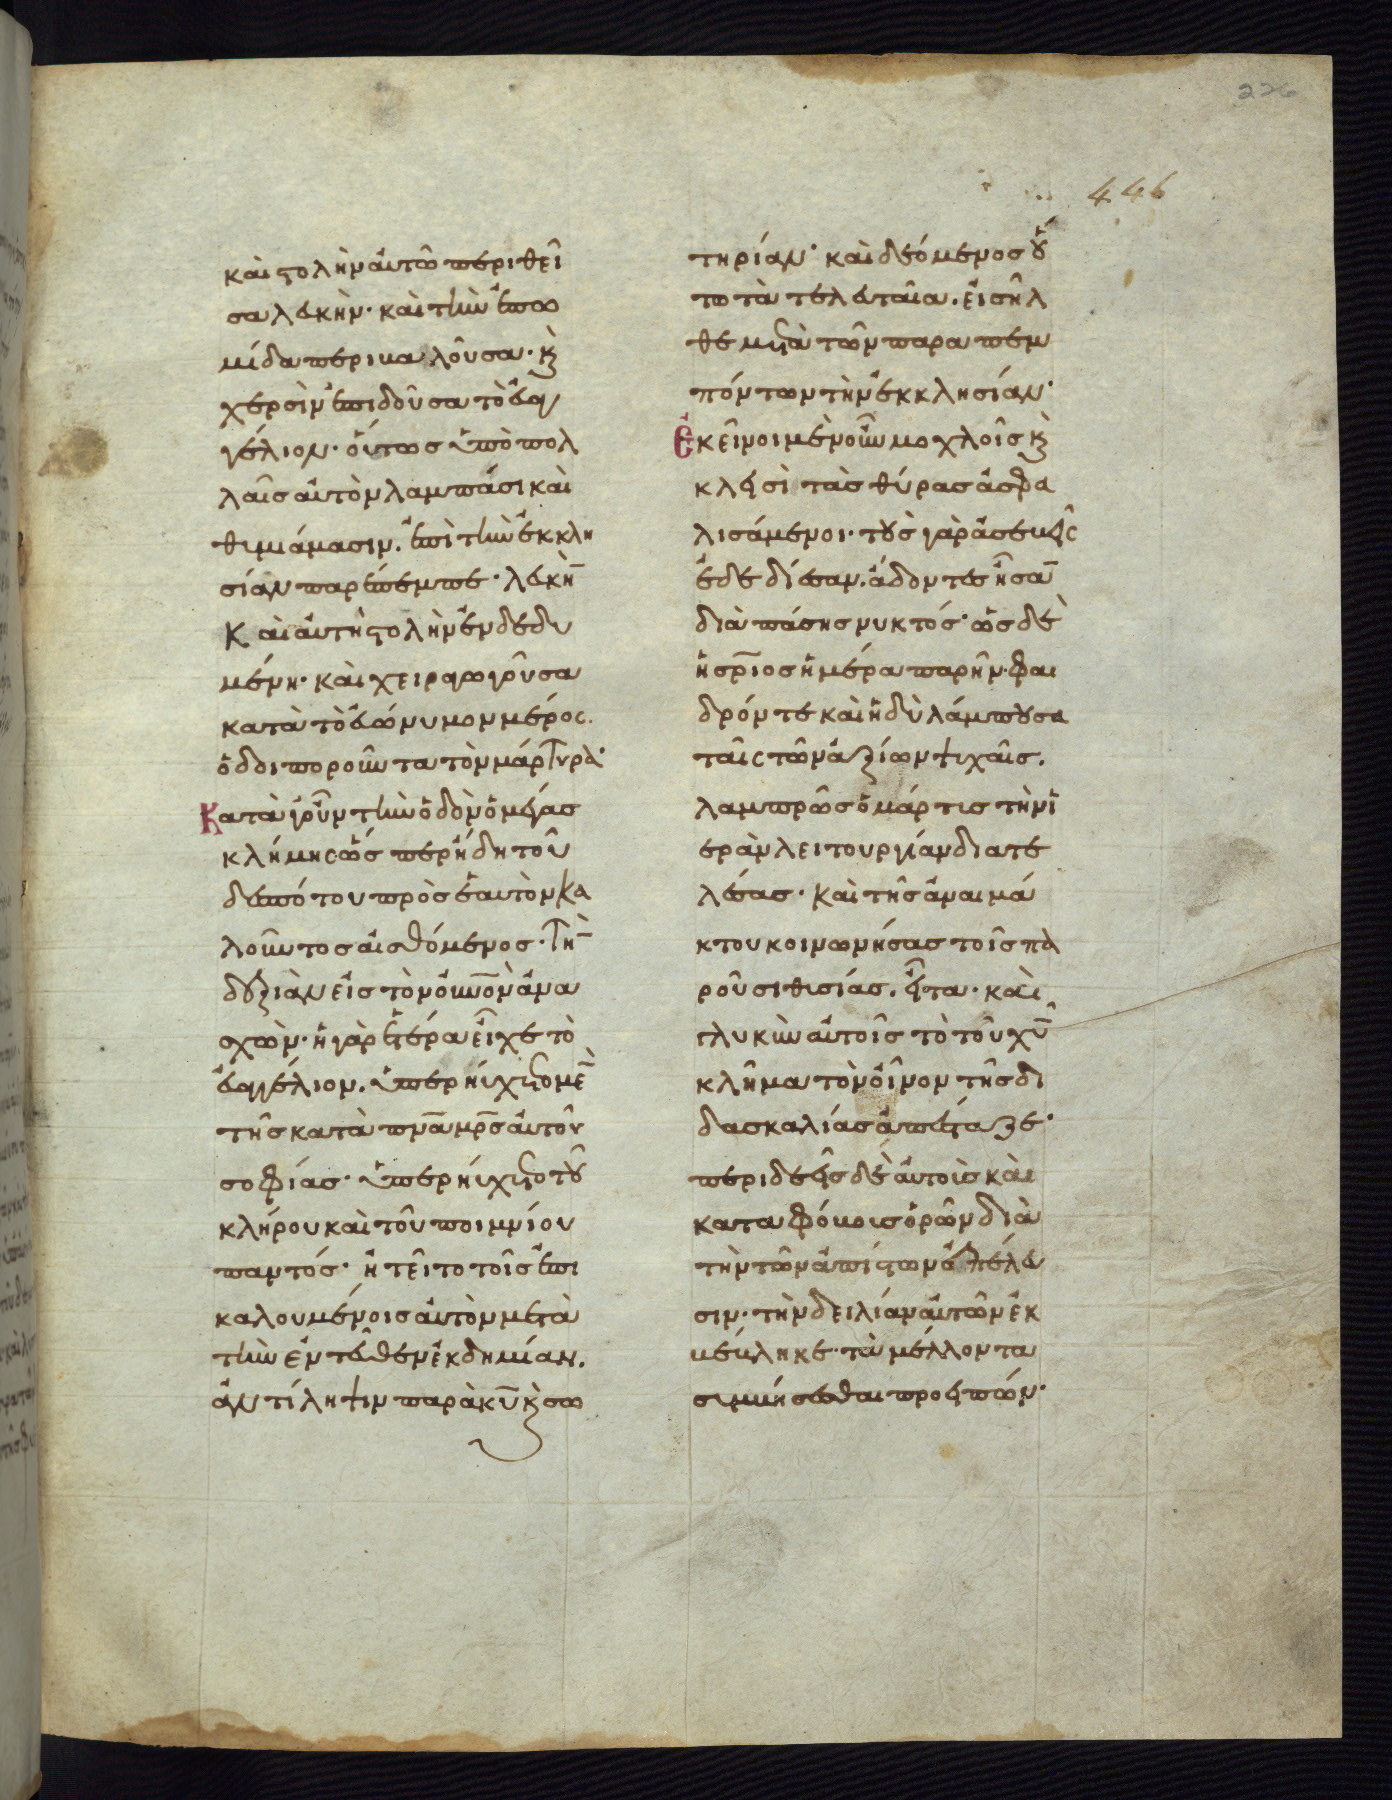 226
446
καὶ στολὴν αὐτῶ περιθεῖ
σα λευκὴν· καὶ τὴν ἐπω
μίδα περικαλοῦσα· κ
χερσὶν ἐπιδοῦσα τὸ εὐαγ
γέλιον· οὕτως ὑπὸ πολ
λαῖς αὐτὸν λαμπάσι καὶ
θυμιάμασιν. ἐπὶ τὴν ἐκκλη
σίαν παρέπεμπε· λευκὴ̅
Καὶ αὐτὴ στολὴν ἐνδεδυ
μένη· καὶ χειραγωγοῦσα
κατὰ τὸ εὐώνυμον μέρος.
ὁδοιποροῦντα τὸν μάρτυρα·
Κατὰ γοῦν τὴν ὁδὸν ὁ μέγας
κλήμης ὥσπερ ἤδη τοῦ
δεσπότου πρὸς ἑαυτὸν κα
λοῦντος αἰσθόμενος· τὴ̅
δεξιὰν εἰς τὸν οὐ̅νον ἀνα
σχὼν· ἡ γὰρ ἑτέρα εἶχε τὸ
εὐαγγέλιον. ὑπερηύχετο μὲ̅
τῆς κατὰ πν̅α μρ̅ς αὐτοῦ
σοφίας· ὑπερηύχετο τοῦ
κλήρου καὶ τοῦ ποιμνίου
παντός· ᾐτεῖτο τοῖς ἐπι
καλουμένοις αὐτὸν μετὰ
τὴν ἐντεῦθεν ἐκδημίαν.
ἀντίληψιν παρὰ κυ̅ κ σω
τηρίαν· καὶ δεόμενος οὕ
τω τὰ τελευταῖα. εἰσῆλ
θε μετὰ τῶν παραπεμ
πόντων τὴν ἐκκλησίαν·
Ἐκεῖνοι μὲν οὖν μοχλοῖς κ
κλεισὶ τὰς θύρας ἀσφα
λισάμενοι· τοὺς γὰρ ἀσεβεῖς
ἐδεδίεσαν. ἄδοντες ἦσα̅
διὰ πάσης νυκτός· ὡς δὲ
ἡ σρ̅ιος ἡμέρα παρῆν. φαι
δρόν τε καὶ ἡδὺ λάμπουσα
ταῖς τῶν ἀξίων ψυχαῖς.
λαμπρῶς ὁ μάρτυς τὴν ἱ
ερὰν λειτουργίαν διατε
λέσας· καὶ τῆς ἀναιμά
κτου κοινωνήσας τοῖς πα
ροῦσι θυσίας. εἶτα· καὶ
γλυκὺν αὐτοῖς τὸ τοῦ χυ̅
κλῆμα τὸν οἶνον τῆς δι
δασκαλίας ἀπέσταζε·
περιδεεῖς δὲ αὐτοὺς καὶ
καταφόβους ὁρῶν διὰ
τὴν τῶν ἀπίστων ἀπέλευ
σιν· τὴν δειλίαν αὐτῶν ἐκ
βέβληκε· τὰ μέλλοντα
συμβήσεσθαι προειπών·